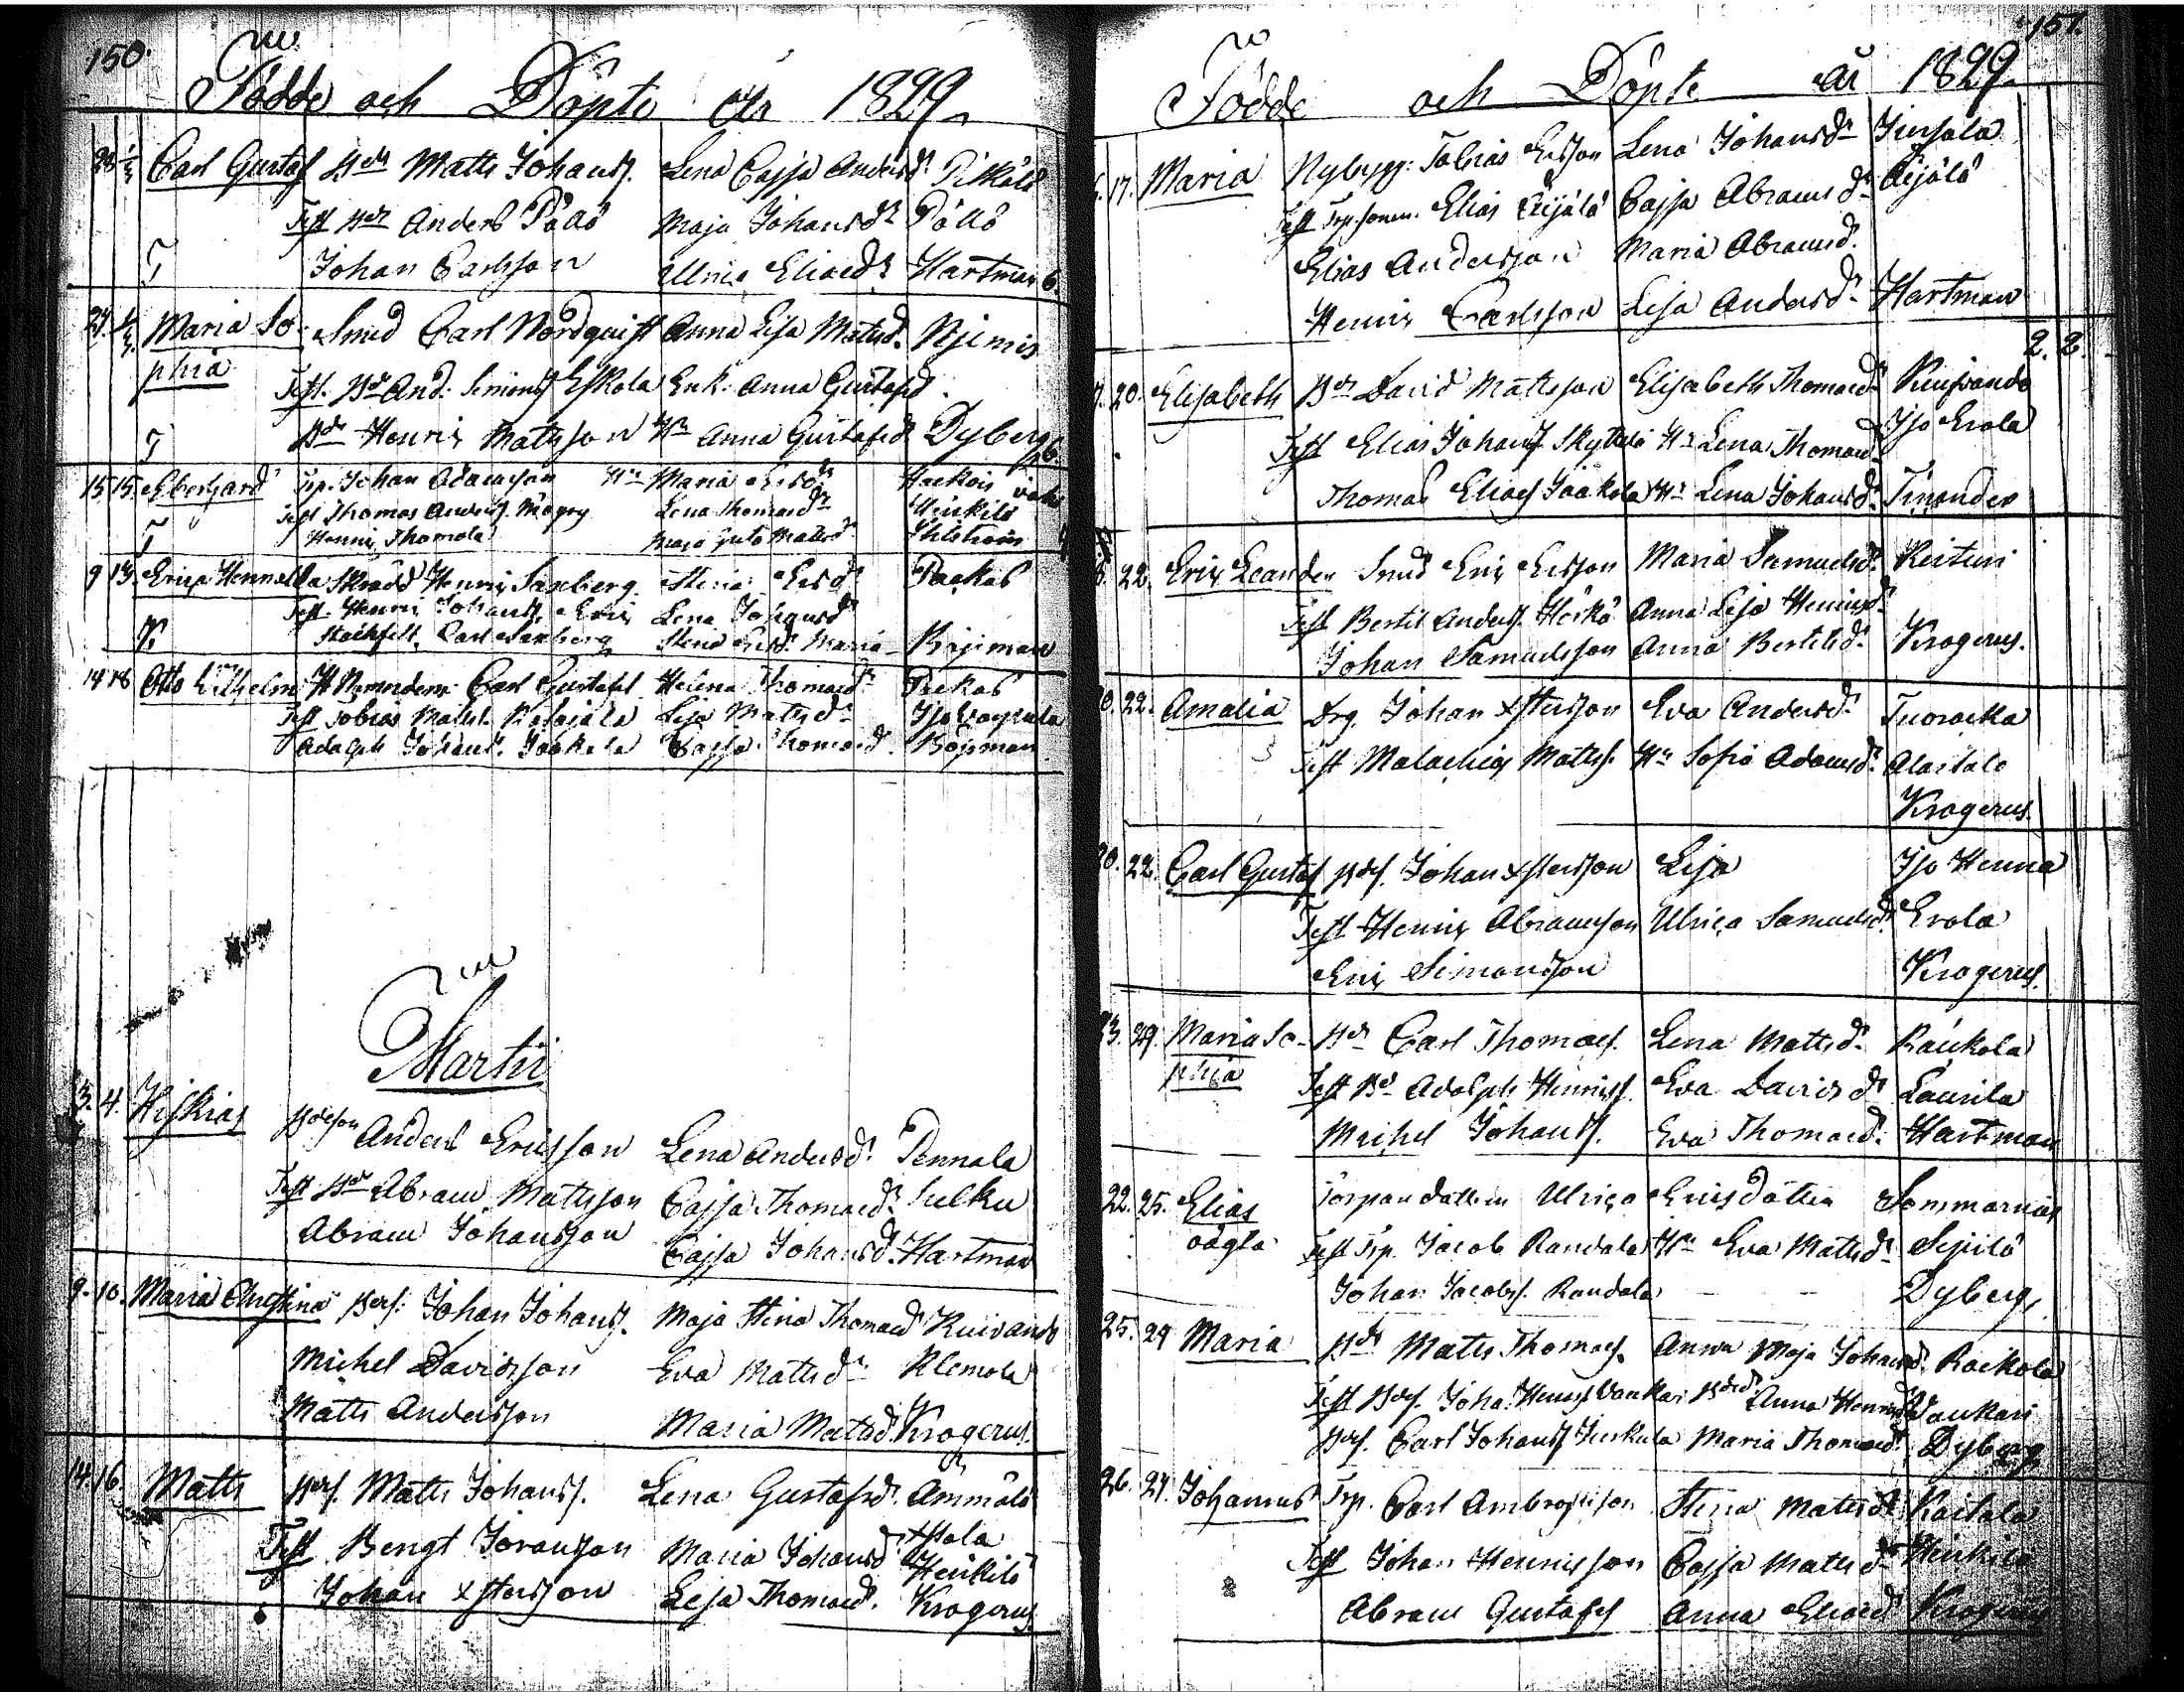 150.
Födde och Döpte År 1829
28 1/3 Carl Gustaf Bdn Matts Johanss. Lena Cajsa Andersdr Pitkälä
Test Bdn Anders Pällö Maja Johansdr Pällö
T Johan Carlsson Ulrica Eliaedr Hartman 6.
Maria So- Smed Carl Nordquist Anna Lisa Mattsd. Njemis
phia Test. Bdn And. Simonss Eskola Enk. Anna Gustafsd.
T Bdn Henric Mattsson Hu Anna Gustafsd. Dyberg
15 15 Eberhard Trp. Johan Adamsson Hu Maria Ersdr
Test Thomas Anderss. Lena Thomaedr Heikilä
T Henric Thomola Maja Mattsdr
9 13 Erica Skrädd Henric Saxberg Stina Ersdr Packas
Test. Henric Johanss. Eric Lena Johansdr
Carl Saxberg Stina Ersdr Maria Böjeman
14 18 Otto Wilhelm Carl Gustafss. Helena Thomaedr Packas
Test Tobias Matts. Lisa Mattsdr
Adolph Johans. Jaakola Cajsa Thomaed. Böjeman
Martii
3. 4. Hiskias Bdeson Anders Ericsson Lena Andersdr Pennala
Test Bdn Abram Mattsson Cajsa Thomaedr Sulku
Abram Johansson Cajsa Johansd. Hartman
9. 10. Maria Christina Bdes. Johan Johanss. Maja Stina Thomaed Kuivando
Michel Davidsson Eva Mattsdr Klemola
Matts Andersson Maria Matsd. Krogerus.
14. 16 Matts Bdes. Matts Johanss. Lena Gustafsd. Ämmälä
Test Bengt Joransson Maria Johansd. Xstala Heikilä
Johan Xstersson Lisa Thomaed. Krogerus
151.
Födde och Döpte År 1829
17. Maria Nybygg. Tobias Ersson Lena Johansdr
Test Trp.sonen Elias Äijälä Cajsa Abramsdr Äijälä
Elias Andersson Maria Abramsd.
Henric Carlsson Lisa Andersdr Hartman
2. 2.
20. Elisabeth Bdn David Mattsson Elisabeth Thomaedr Kuivando
Test Elias Johanss. Skyttälä Hu Lena Thomaed. Iso Erola
Thomas Eliaess Jaakola Hu Lena Johansdr Tenander
22. Eric Leander Smed Eric Ersson Maria Samuelsd. Keituri
Test Bertil Anderss. Heikä Anna Lisa Henricsd.
Johan Samuelsson Anna Bertilsd. Krogerus.
20. 22. Amalia Drg. Johan Xstersson Eva Andersd.
Test Malachias Mattss. Hu Sofia Adamsd. Alaitalo
Krogerus
20. 22. Carl Gustaf Bdes. Johan Xstersson Lisa Iso Henna
Test Henric Abramsson Ulrica Samuelsd. Erola
Eric Simonsson Krogerus
23. 29. Maria So- Bdn Carl Thomaess. Lena Mattsdr Raukola
phia Test Bd Adolph Henricss. Eva Davidsdr Laurila
Michel Johanss. Eva Thomaed. Hartman
22. 25. Elias Torpardottern Ulrica Ericsdotter Sommarnäs
oägta Test Trp. Jacob Randala Hu Eva Mattsdr Sepilä
Johan Jacobss. Randala Dyberg
25. 29 Maria Bdn Matts Thomaess. Anna Maja Johansd. Raukola
Test Bdes. Joha. Henricss. Waukari Anna Waukari
Bdes. Carl Johanss Maria Thomaed. Dyberg
26. 29. Johannes Trp. Carl Ambrosiisson Stina Mattsd. Kaitala
Test Johan Henricsson Cajsa Mattsdr Heikilä
Abram Gustafss Anna Eliaed. Krogerus